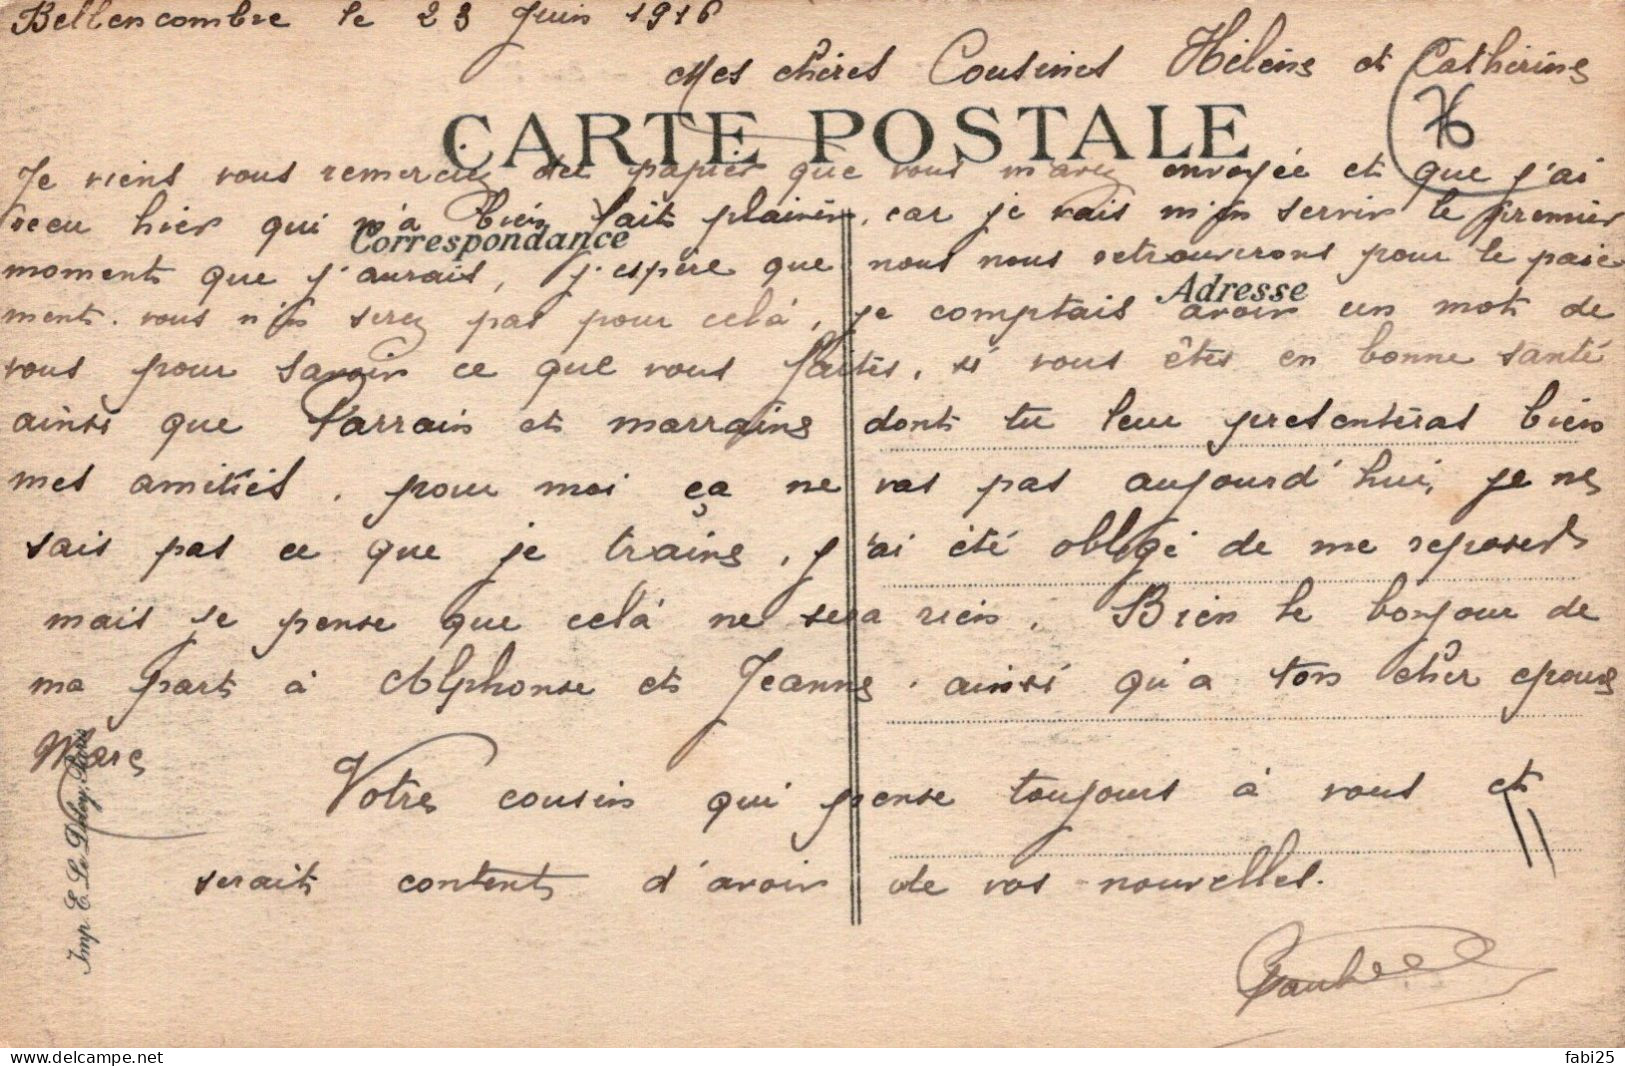 Bellencombre le 23 Juin 1916
Mes chères Cousines Hélène et Catherine
76
CARTE POSTALE
Je viens vous remercier des papier que vous m'avez envoyée et que j'ai
recu hier qui m'a bien fait plaisir, car je vais m'en servir le premier
Correspondance
moment que j'aurais, j'espère que nous nous retrouverons pour le paie
Adresse
ment. vous n'en serez pas pour celà, je comptais avoir un mot de
vous pour savoir ce que vous faites, si vous êtes en bonne santé
ainsi que Parrain et marraine dont tu leur presentéras bien
mes amitiés, pour moi ça ne vas pas aujourd'hui, je ne
sais pas ce que je traine, j'ai été obligé de me reposer
mais je pense que celà ne sera rien. Bien le bonjour de
ma part à Alphonse et Jeanne. ainsi qu'a ton cher epoux
Marc
Votre cousin qui pense toujours à vous et
serait content d'avoir de vos nouvelles.
Imp. E. Le Deley, Paris
fabi25
www.delcampe.net